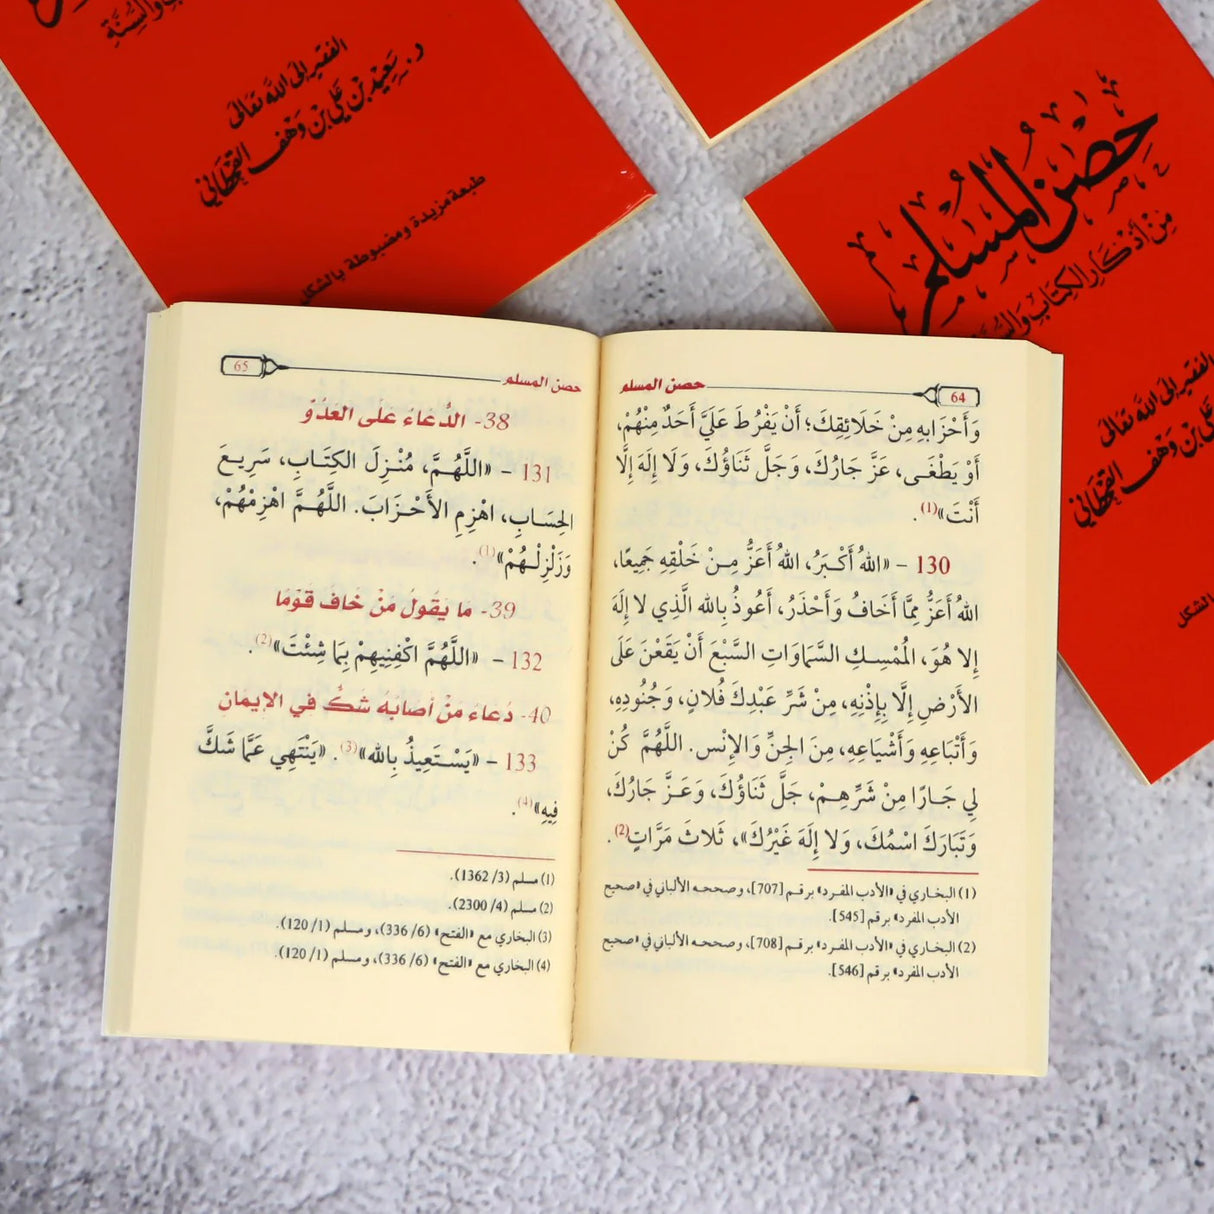 والسنة
الفقير إلى الله تعالى
د. سَعِيْد بْن عَلي بْن وَهف القحطاني
طبعة مزيدة ومضبوطة بالشكل
حصن المسلم
مِنْ أذْكَارِ الكِتَابِ وَالسُّنَّة
الفقير إلى الله تعالى
عَلي بْن وَهف القحطاني
بالشكل
64
حصن المسلم
وَأَحْزَابِهِ مِنْ خَلَائِقِكَ؛ أَنْ يَفْرُطَ عَلَيَّ أَحَدٌ مِنْهُمْ،
أَوْ يَطْغَى، عَزَّ جَارُكَ، وَجَلَّ ثَنَاؤُكَ، وَلَا إِلَهَ إِلَّا
أَنْتَ»(1).
130 – «اللهُ أَكْبَرُ، اللهُ أَعَزُّ مِنْ خَلْقِهِ جَمِيعًا،
اللهُ أَعَزُّ مِمَّا أَخَافُ وَأَحْذَرُ، أَعُوذُ بِالله الَّذِي لا إِلَهَ
إِلا هُوَ، الْمُمْسِكِ السَّمَاوَاتِ السَّبْعَ أَنْ يَقَعْنَ عَلَى
الأَرْضِ إِلَّا بِإِذْنِهِ، مِنْ شَرِّ عَبْدِكَ فُلَانٍ، وَجُنُودِهِ،
وَأَتْبَاعِهِ وَأَشْيَاعِهِ، مِنَ الجِنِّ وَالإِنْس. اللَّهُمَّ كُنْ
لِي جَارًا مِنْ شَرِّهِمْ، جَلَّ ثَنَاؤُكَ، وَعَزَّ جَارُكَ،
وَتَبَارَكَ اسْمُكَ، وَلا إِلَهَ غَيْرُكَ»، ثَلاثَ مَرَّاتٍ(2).
(1) البخاري في «الأدب المفرد» برقم [707]، وصححه الألباني في «صحيح
الأدب المفرد» برقم [545].
(2) البخاري في «الأدب المفرد» برقم [708]، وصححه الألباني في «صحيح
الأدب المفرد» برقم [546].
حصن المسلم
65
38- الدُّعَاءُ عَلَى العَدُوِّ
131 – «اللَّهُمَّ، مُنْزِلَ الكِتَابِ، سَرِيعَ
الحِسَابِ، اهْزِمِ الأَحْزَابَ. اللَّهُمَّ اهْزِمْهُمْ،
وَزَلْزِلْهُمْ»(1).
39- مَا يَقُولُ مَنْ خَافَ قَوْمًا
132 – «اللَّهُمَّ اكْفِنِيهِمْ بِمَا شِئْتَ»(2).
40- دُعَاءُ مَنْ أَصَابَهُ شَكٌّ في الإِيمَانِ
133 – «يَسْتَعِيذُ بِالله»(3). «يَنْتَهِي عَمَّا شَكَّ
فِيهِ»(4).
(1) مسلم (3/ 1362).
(2) مسلم (4/ 2300).
(3) البخاري مع «الفتح» (6/ 336)، ومسلم (1/ 120).
(4) البخاري مع «الفتح» (6/ 336)، ومسلم (1/ 120).